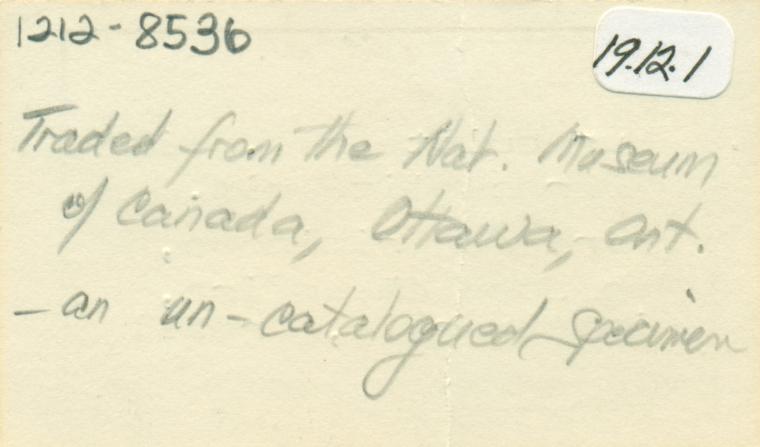 1212-8536
19.12.1
Traded from the Nat. Museum
of Canada, Ottawa, Ont.
- an un-catalogued specimen